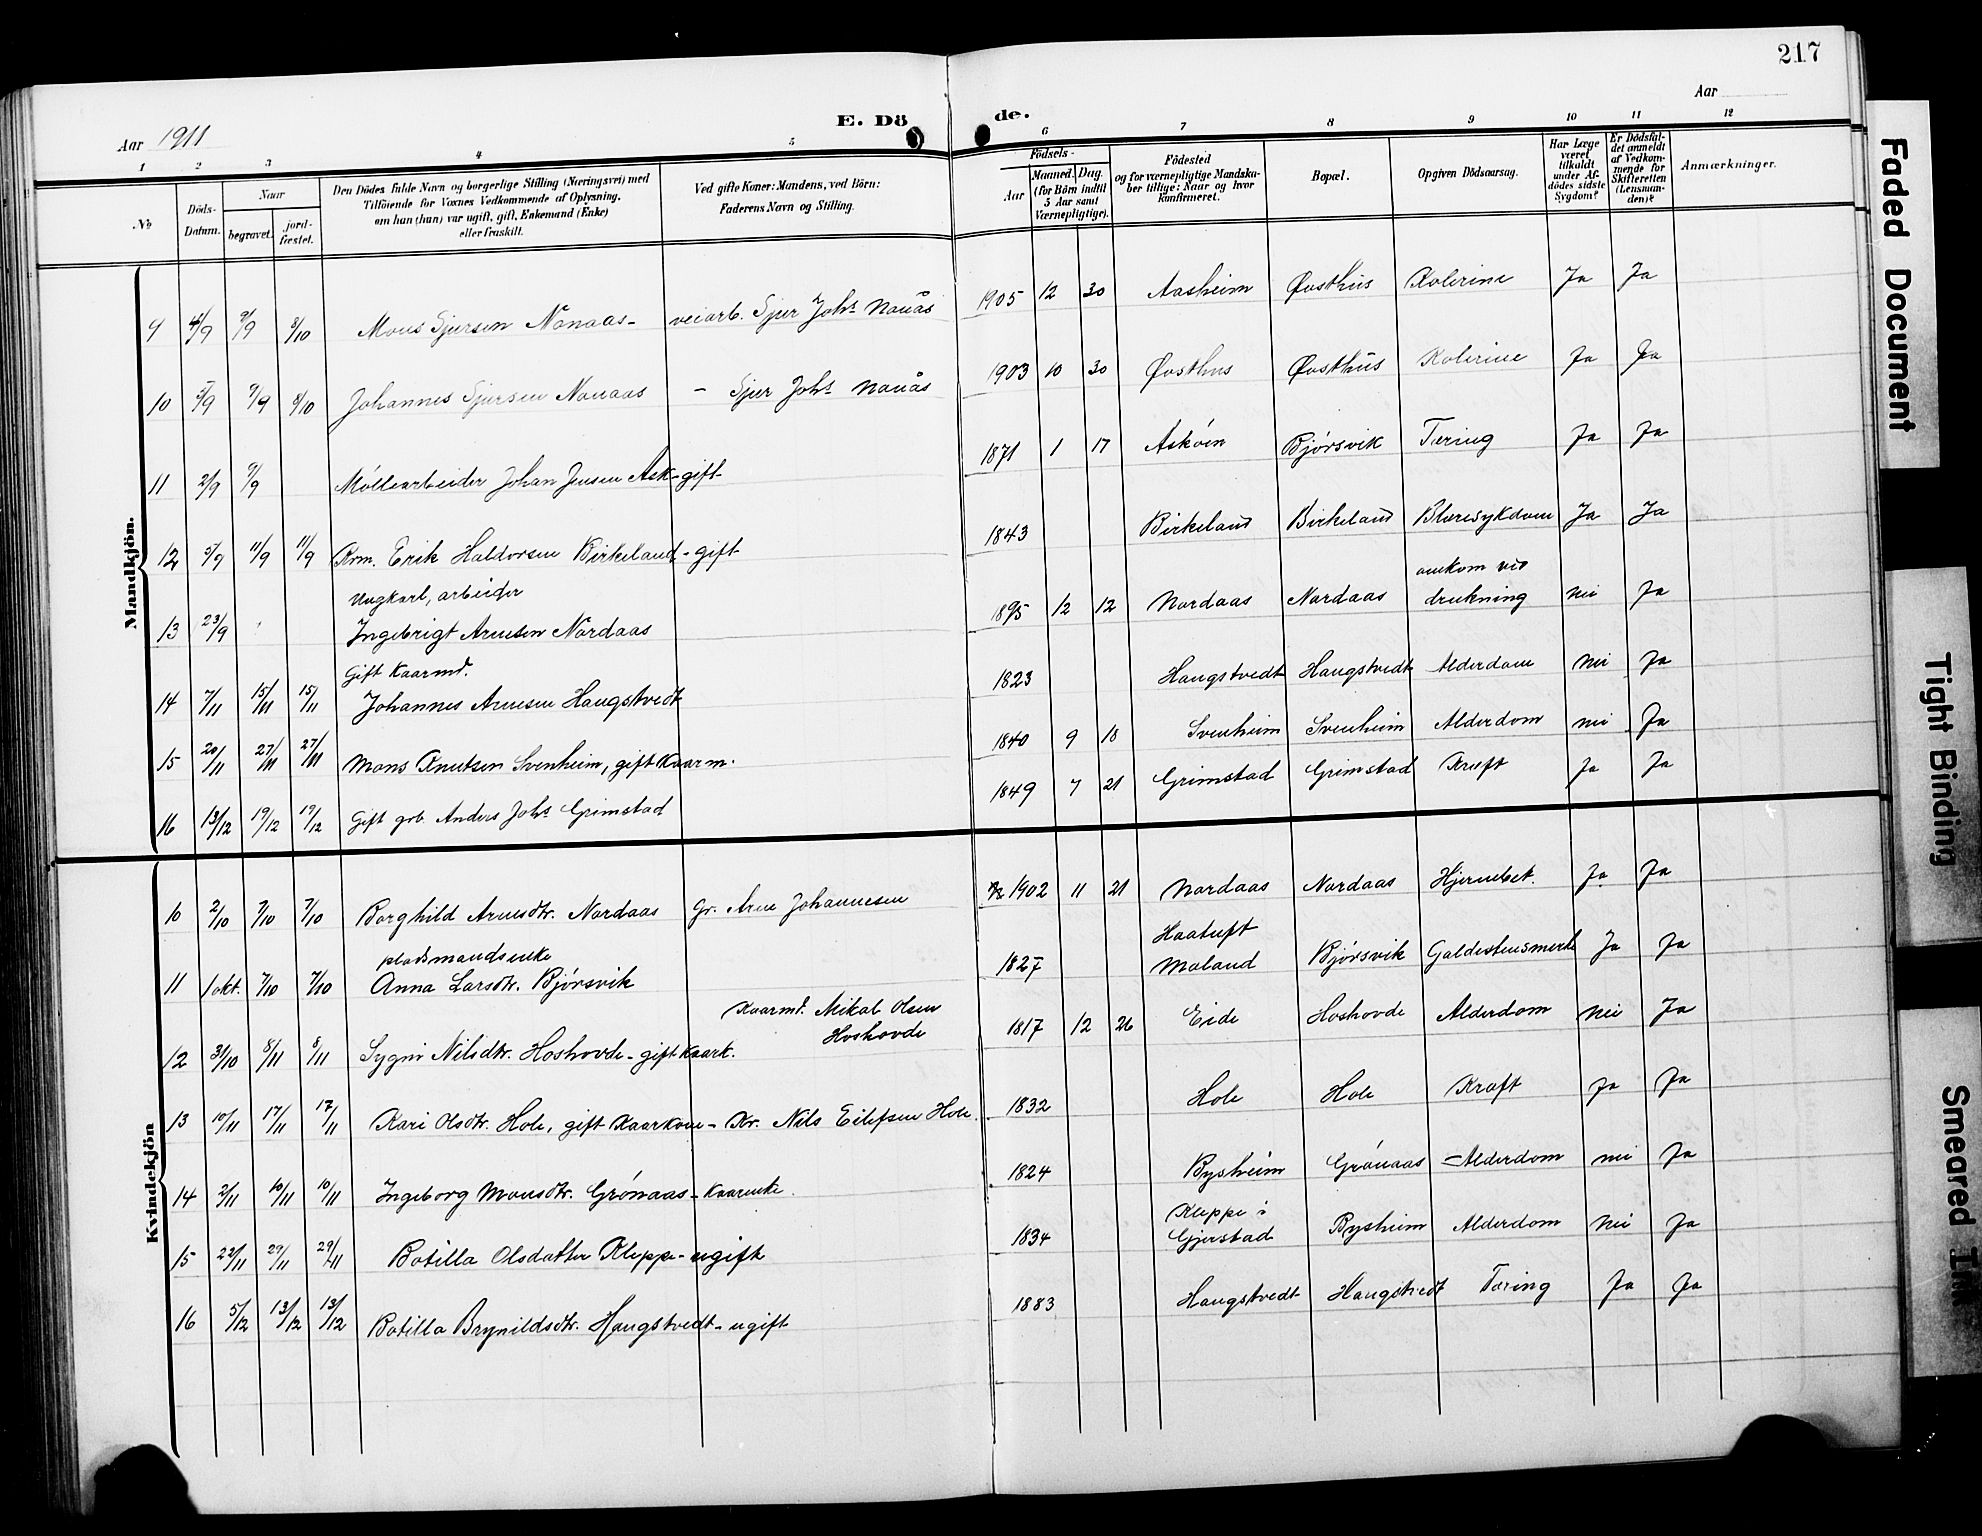 217
Aar
Aar 1911
E. Dö
de.
1 2 3 4 5 6 7 8 9 10 11 12
No
Döds-
Datum.
Naar
begravet.
jord-
fæstet.
Den Dödes fulde Navn og borgerlige Stilling (Næringsvei) med
Tilföiende for Voxnes Vedkommende af Oplysning,
om han (hun) var ugift, gift, Enkemand (Enke)
eller fraskilt.
Ved gifte Koner: Mandens, ved Börn:
Faderens Navn og Stilling.
Födsels-
Aar
Maaned. Dag.
(for Börn indtil
5 Aar samt
Værnepligtige).
Födested
og for værnepligtige Mandska-
ber tillige: Naar og hvor
konfirmeret.
Bopæl.
Opgiven Dödsaarsag.
Har Læge
været
tilkaldt
under Af-
dödes sidste
Sygdom?
Er Dödsfal-
det anmeldt
af Vedkom-
mende for
Skifteretten
(Lensman-
den)?
Anmærkninger.
Mandkjön.
9 4/9 9/9 8/10 Mons Sjursen Nonaas - veiarb. Sjur Johs Nonås 1905 12 30 Aasheim Øvsthus Kolerine Ja Ja
10 5/9 9/9 8/10 Johannes Sjursen Nonaas - Sjur Johs Nonås 1903 10 30 Øvsthus Øvsthus Kolerine Ja Ja
11 2/9 9/9 Möllearbeider Johan Jensen Ask - gift 1871 1 17 Asköen Bjørsvik Tæring Ja Ja
12 5/9 11/9 11/9 Krm. Erik Haldorsen Birkeland - gift 1843 Birkeland Birkeland Blæresykdom Ja Ja
Ungkarl, arbeider
omkom ved
13 23/9 Ingebrigt Arnesen Nordaas 1895 12 12 Nordaas Nordaas drukning nei Ja
Gift Kaarmd.
14 7/11 15/11 15/11 Johannes Arnesen Haugstvedt 1823 Haugstvedt Haugstvedt Alderdom nei Ja
15 20/11 27/11 27/11 Mons Knutsen Svenheim, gift Kaarm. 1840 9 18 Svenheim Svenheim Alderdom nei Ja
16 13/12 19/12 19/12 Gift grb. Anders Johs Grimstad 1849 7 21 Grimstad Grimstad Kræft Ja Ja
Kvindekjön
10 2/10 7/10 7/10 Borghild Arnesdtr. Nordaas Gr. Arne Johannesen 1902 11 21 Nordaas Nordaas Hjernebet. Ja Ja
pladsmandsenke
Haatuft
11 1 okt. 7/10 7/10 Anna Larsdtr. Bjørsvik 1827 Moland Bjørsvik Galdestensmerte Ja Ja
Kaarmd. Mikal Olsen
Hoshovde
12 31/10 8/11 8/11 Sygni Nilsdtr. Hoshovde - gift Kaark. 1817 12 26 Eide Hoshovde Alderdom nei Ja
13 10/11 17/11 17/11 Kari Olsdtr. Hole, gift Kaarkone - Kr. Nils Eilefsen Hole. 1832 Hole Hole Kræft Ja Ja
14 2/11 10/11 10/11 Ingeborg Monsdtr. Grönaas - Kaarenke. 1824 Bysheim Grönaas Alderdom nei Ja
Kleppe i
15 22/11 29/11 29/11 Botilla Olsdatter Kleppe - ugift 1834 Gjerstad Bysheim Alderdom nei Ja
16 5/12 13/12 13/12 Botilla Brynildsdtr. Haugstvedt - ugift 1883 Haugstvedt Haugstvedt Tæring Ja Ja
Faded Document
Tight Binding
Smeared Ink